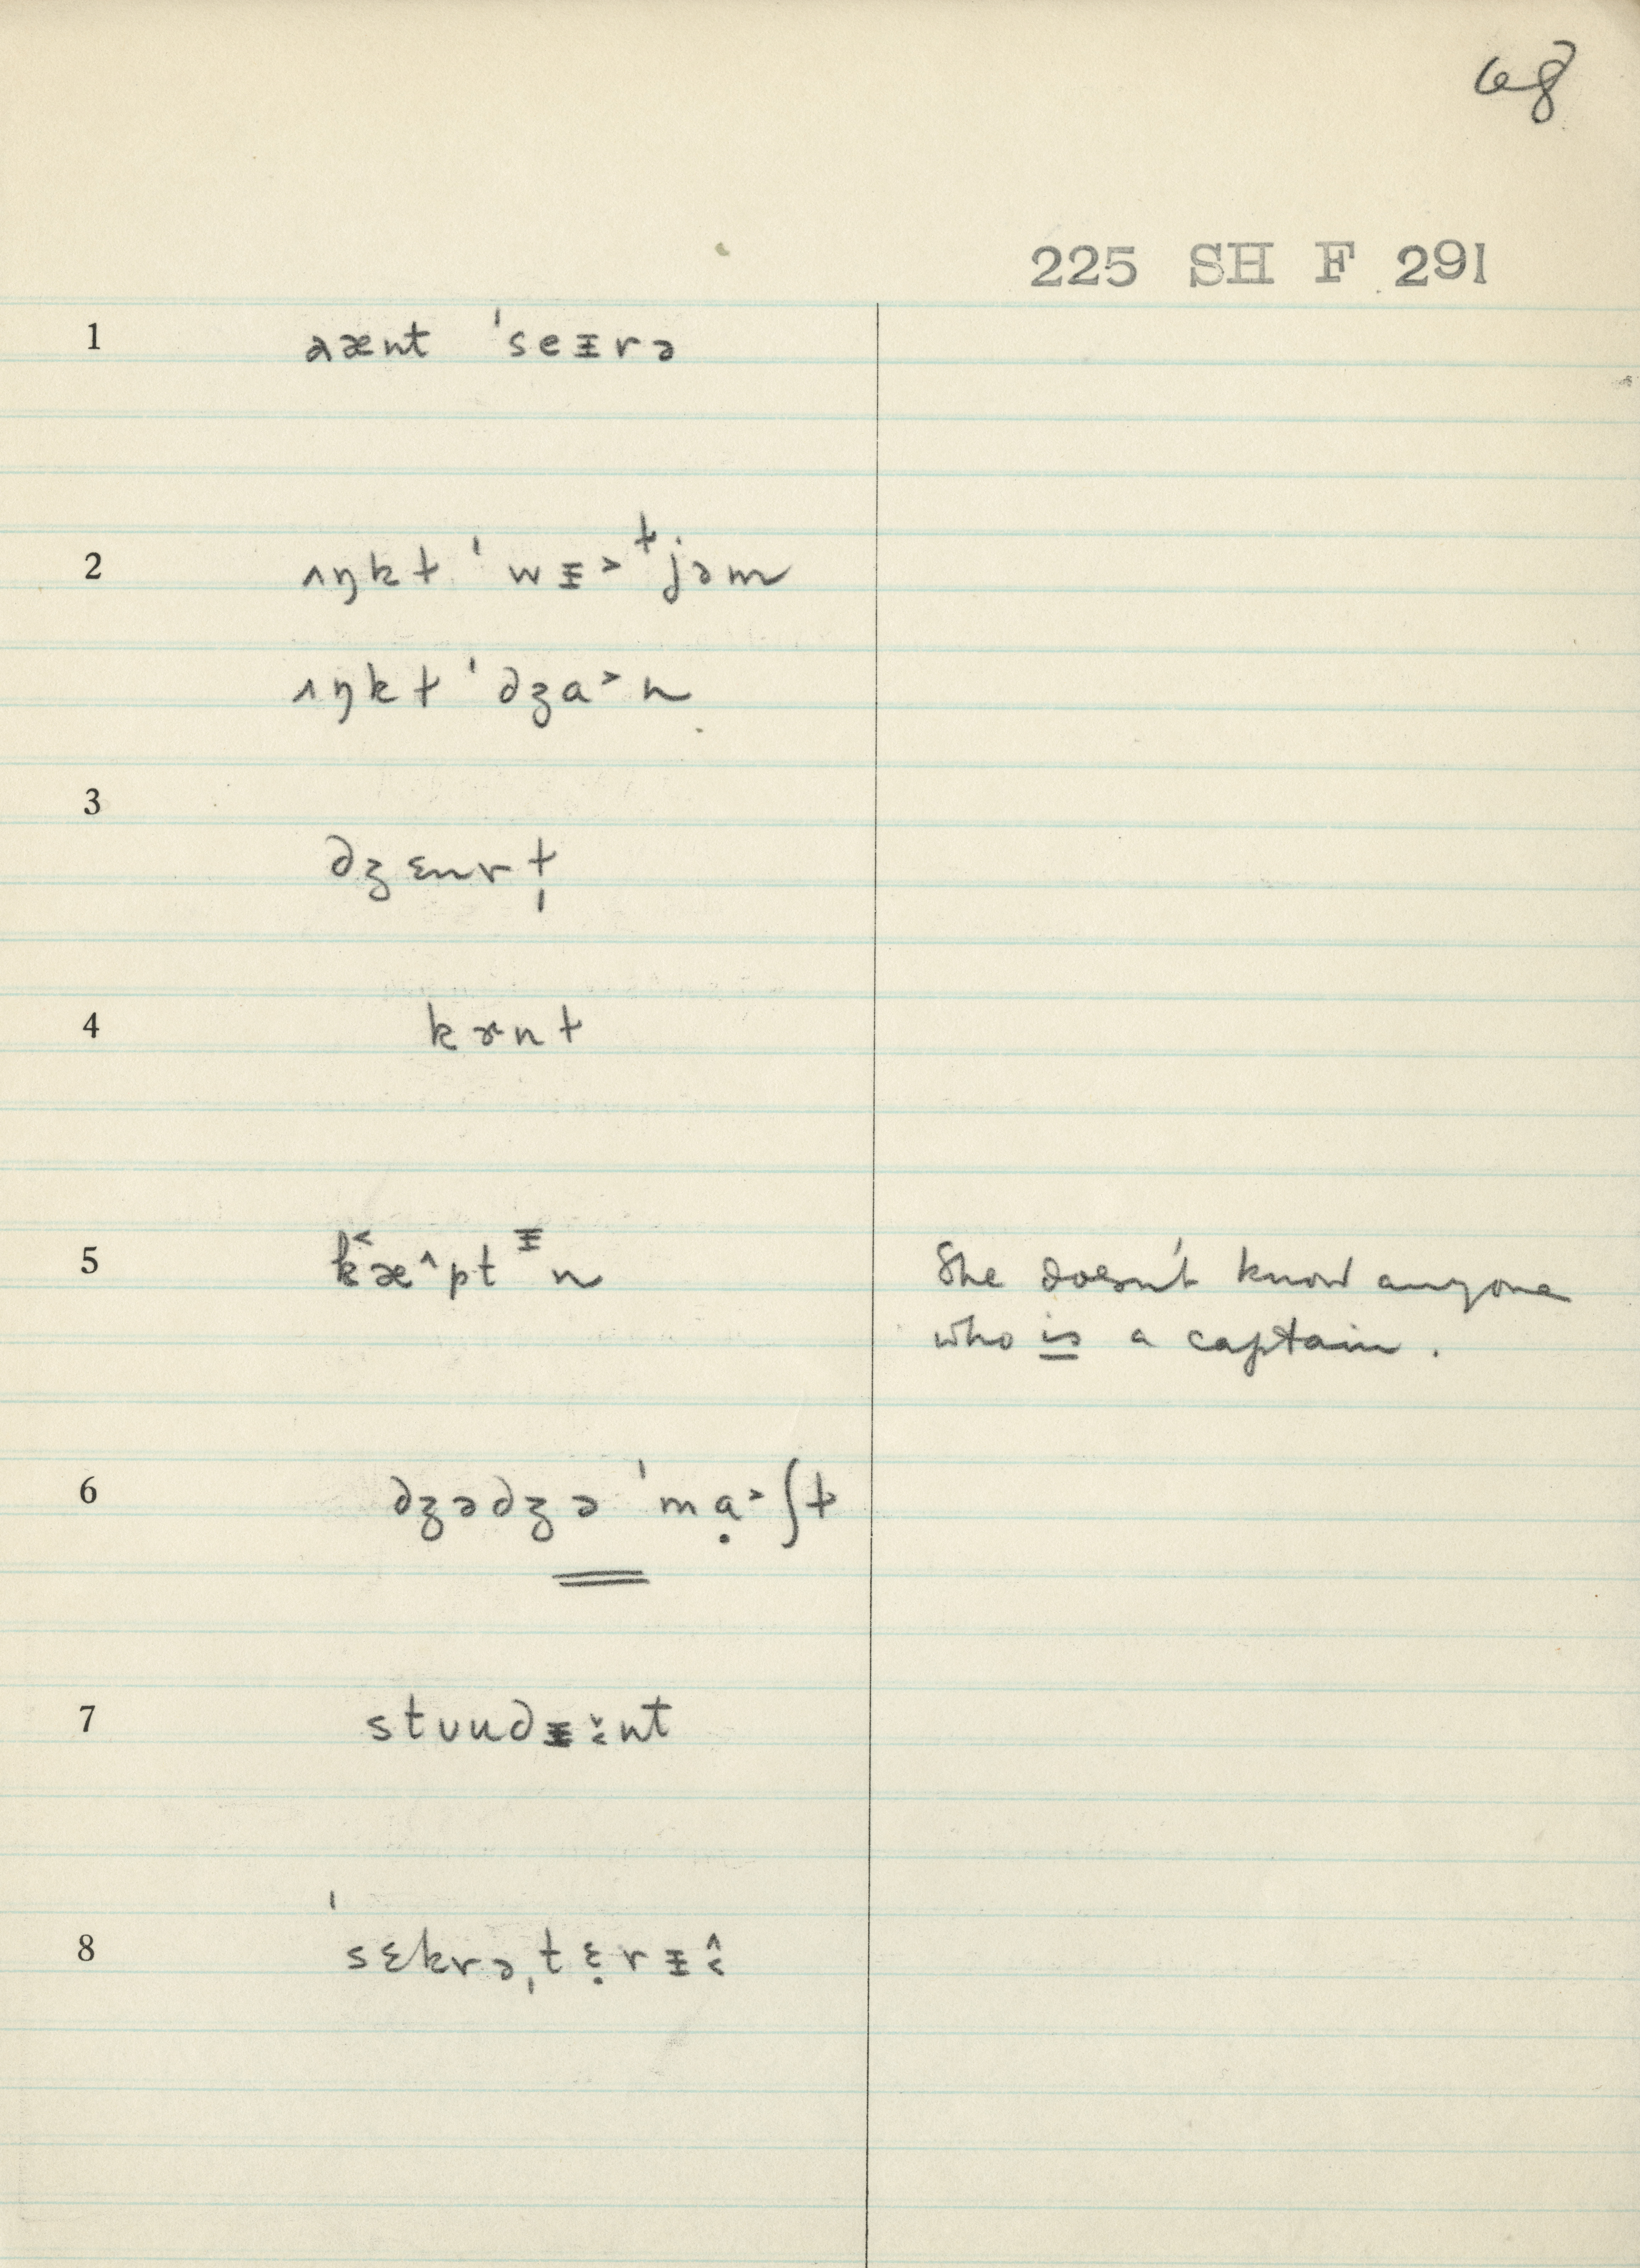 68
225 SH F 291
1 aænt ˈseᵻrə
2 ʌŋkɫ ˈwᵻ˃ɫjəm
ʌŋkɫ ˈdʒa˃n
3 dʒɛnrɫ̩
4 kɝnɫ
5 k˂æ˄ptᵻn She doesn't know anyone
who is a captain.
6 dʒədʒə ˈmạ˃ʃɫ
7 stuudᵻ˅˂nt
8 ˈsɛkrəˌtɛ̣rᵻ˄˂